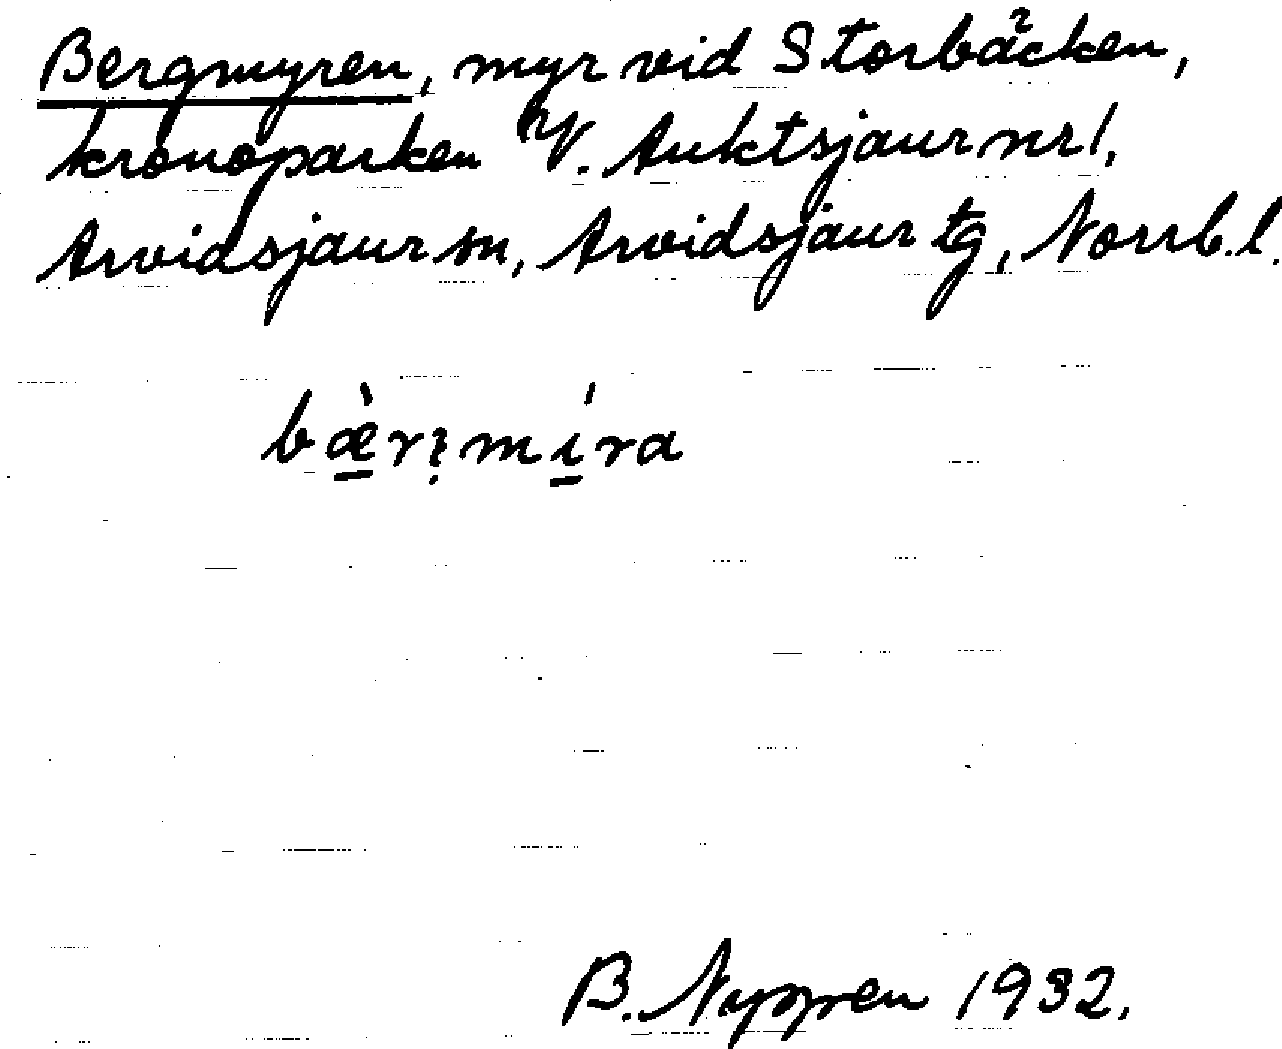 Bergmyren, myr vid Storbäcken,
kronoparken V. Auktsjaur nr 1,
Arvidsjaur sn, Arvidsjaur tg, Norrb. l.
B. 1932.